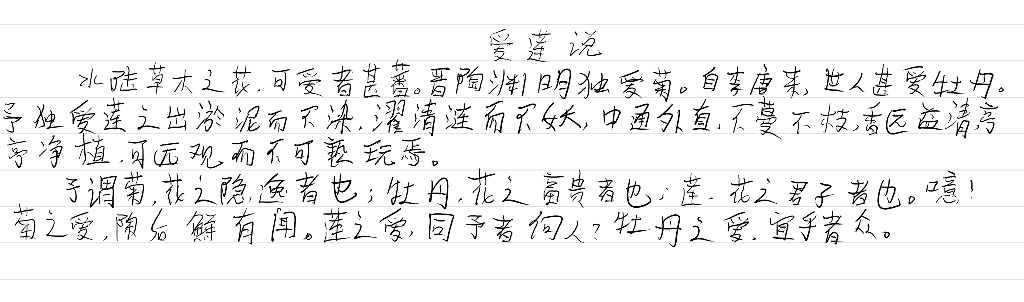 爱莲说
水陆草木之花,可爱者甚蕃。晋陶渊明独爱菊。自李唐来,世人甚爱牡丹。
予独爱莲之出淤泥而不染,濯清涟而不妖,中通外直,不蔓不枝,香远益清,亭
亭净植,可远观而不可亵玩焉。
予谓菊,花之隐逸者也;牡丹,花之富贵者也;莲,花之君子者也。噫!
菊之爱,陶后鲜有闻。莲之爱,同予者何人?牡丹之爱,宜乎者众。